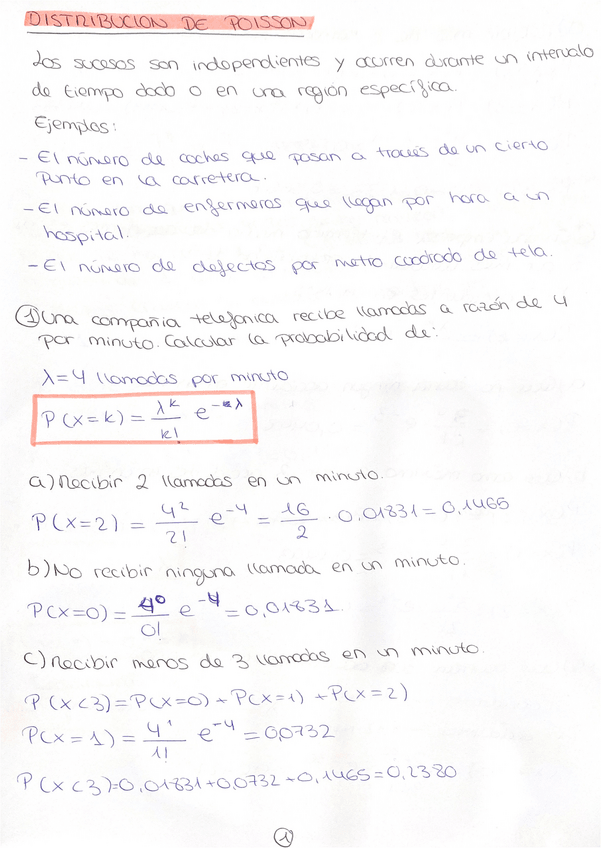 DISTRIBUCION DE POISSON
Los sucesos son independientes y ocurren durante un intervalo
de tiempo dado o en una región específica.
Ejemplos:
- El número de coches que pasan a través de un cierto
punto en la carretera.
- El número de enfermeros que llegan por hora a un
hospital.
- El número de defectos por metro cuadrado de tela.
① Una compañia telefonica recibe llamadas a razón de 4
por minuto. Calcular la probabilidad de:
λ=4 llamadas por minuto
P(x=k) = λ^k / k! e^-λ
a) Recibir 2 llamadas en un minuto.
P(x=2) = 4^2 / 2! e^-4 = 16 / 2 · 0,01831 = 0,1465
b) No recibir ninguna llamada en un minuto.
P(x=0) = 4^0 / 0! e^-4 = 0,01831
c) Recibir menos de 3 llamadas en un minuto.
P(x<3) = P(x=0) + P(x=1) + P(x=2)
P(x=1) = 4^1 / 1! e^-4 = 0,0732
P(x<3)=0,01831+0,0732+0,1465=0,2380
①